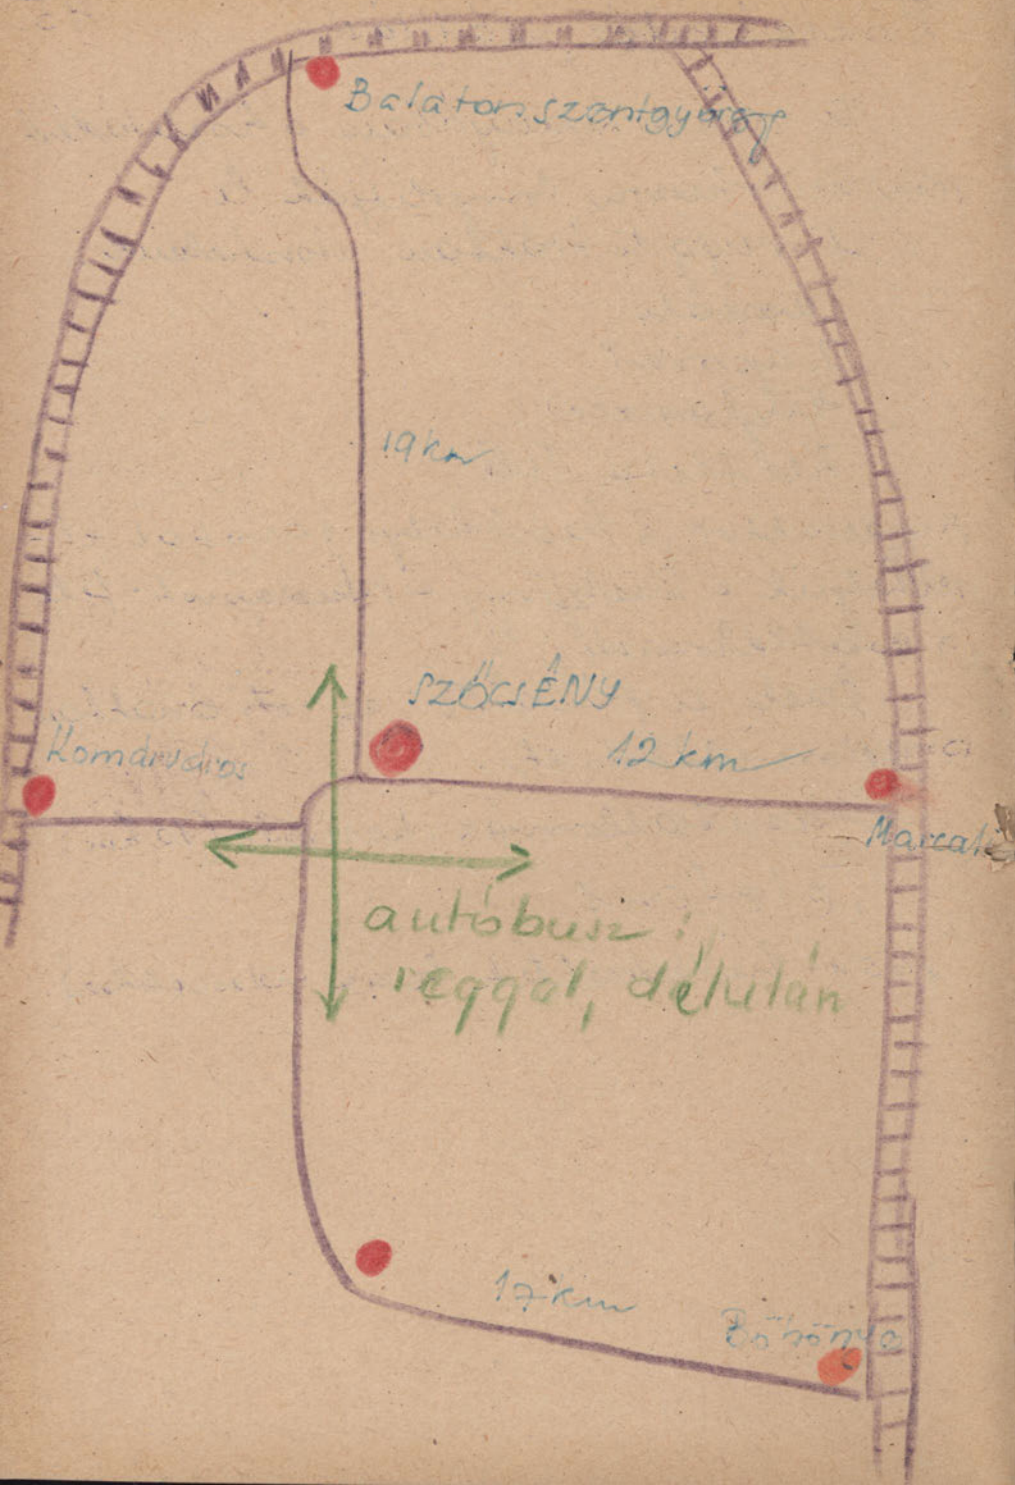 Balatonszentgyörgy
19 km
SZŐCSÉNY
Komárváros
12 km
Marcali
autóbusz:
reggel, délután
17 km
Böhönye